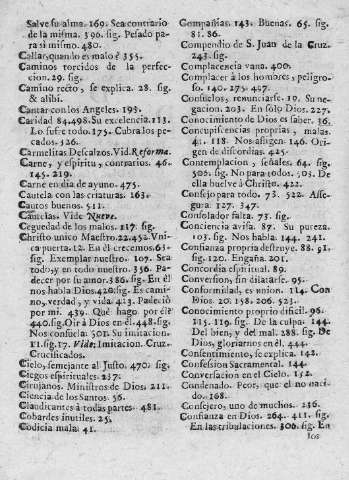 Salve su alma. 169. Sea contrario
de la misma. 396. sig. Pesado pa-
ra sì mismo. 480.
Callar, quando es malo? 355.
Caminos torcidos de la perfec-
cion. 29. sig.
Camino recto, se explica. 28. sig.
& alibi.
Cantar con los Angeles. 193.
Caridad 84.498. Su excelencia. 113.
Lo sufre todo. 175. Cubra los pe-
cados. 126.
Carmelitas Descalzos. Vid. Reforma.
Carne, y espiritu, contrarios. 46.
145. 219.
Carne en dia de ayuno. 475.
Cautela con las criaturas. 163.
Cautos buenos. 511.
Cautelas. Vide Nueve.
Ceguedad de los malos. 217. sig.
Christo unico Maestro. 22.452. Vni-
ca puerta. 12. En èl crecemos. 63.
sig. Exemplar nuestro. 107. Sea
todo, y en todo nuestro. 356. Pa-
decer por su amor. 386. sig. En èl
nos habla Dios. 420. sig. Es cami-
no, verdad, y vida. 413. Padeciò
por mi. 439. Què hago por èl?
440. sig. Oir à Dios en èl. 448. sig.
Nos consuela. 501. Su imitacion.
11. sig. 17. Vide; Imitacion. Cruz.
Crucificados.
Cielo, semejante al Justo. 470. sig.
Ciegos espirituales. 237.
Cirujanos. Ministros de Dios. 211.
Ciencia de los Santos. 56.
Claudicantes à todas partes. 481.
Cobardes inutiles. 25.
Codicia mala. 41.
Compañias. 143. Buenas. 65. sig.
81. 86.
Compendio de S. Juan de la Cruz.
243. sig.
Complacencia vana. 400.
Complacer à los hombres, peligro-
so. 140. 275. 487.
Consuelos, renunciarse. 19. Su ne-
gacion. 203. En solo Dios. 227.
Conocimiento de Dios es saber. 36.
Concupiscencias proprias, malas.
41. 118. Nos afligen. 146. Ori-
gen de discordias. 425.
Contemplacion, señales. 64. sig.
506. sig. No para todos. 505. De
ella buelve à Christo. 422.
Consejo para todo. 73. 522. Asse-
gura. 127. 347.
Consolador falta. 73. sig.
Conciencia avisa. 87. Su pureza.
103. sig. Nos habla. 144. 241.
Confianza propria destruye. 88. 91.
sig. 120. Engaña. 201.
Concordia espiritual. 89.
Conversion, sin dilatarse. 95.
Conformidad, es union. 114. Con
Dios. 20. 158. 206. 523.
Conocimiento proprio dificil. 96.
115. 119. sig. De la culpa. 144.
Del bien, y del mal. 288. sig. De
Dios, gloriarnos en èl. 444.
Consentimiento, se explica. 142.
Confession Sacramental. 144.
Conversacion en el Cielo. 152.
Condenado. Peor, que el no naci-
do. 168.
Consejero, uno de muchos. 236.
Confianza en Dios. 264. 411. sig.
En las tribulaciones. 306. sig. En
los